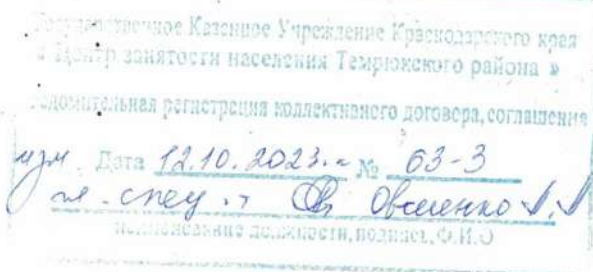 Государственное Казенное Учреждение Краснодарского края
« Центр занятости населения Темрюкского района »
уведомительная регистрация коллективного договора, соглашения
изм. Дата 12.10.2023г. № 63-3
гл. спец.
наименование должности, подпись, Ф.И.О